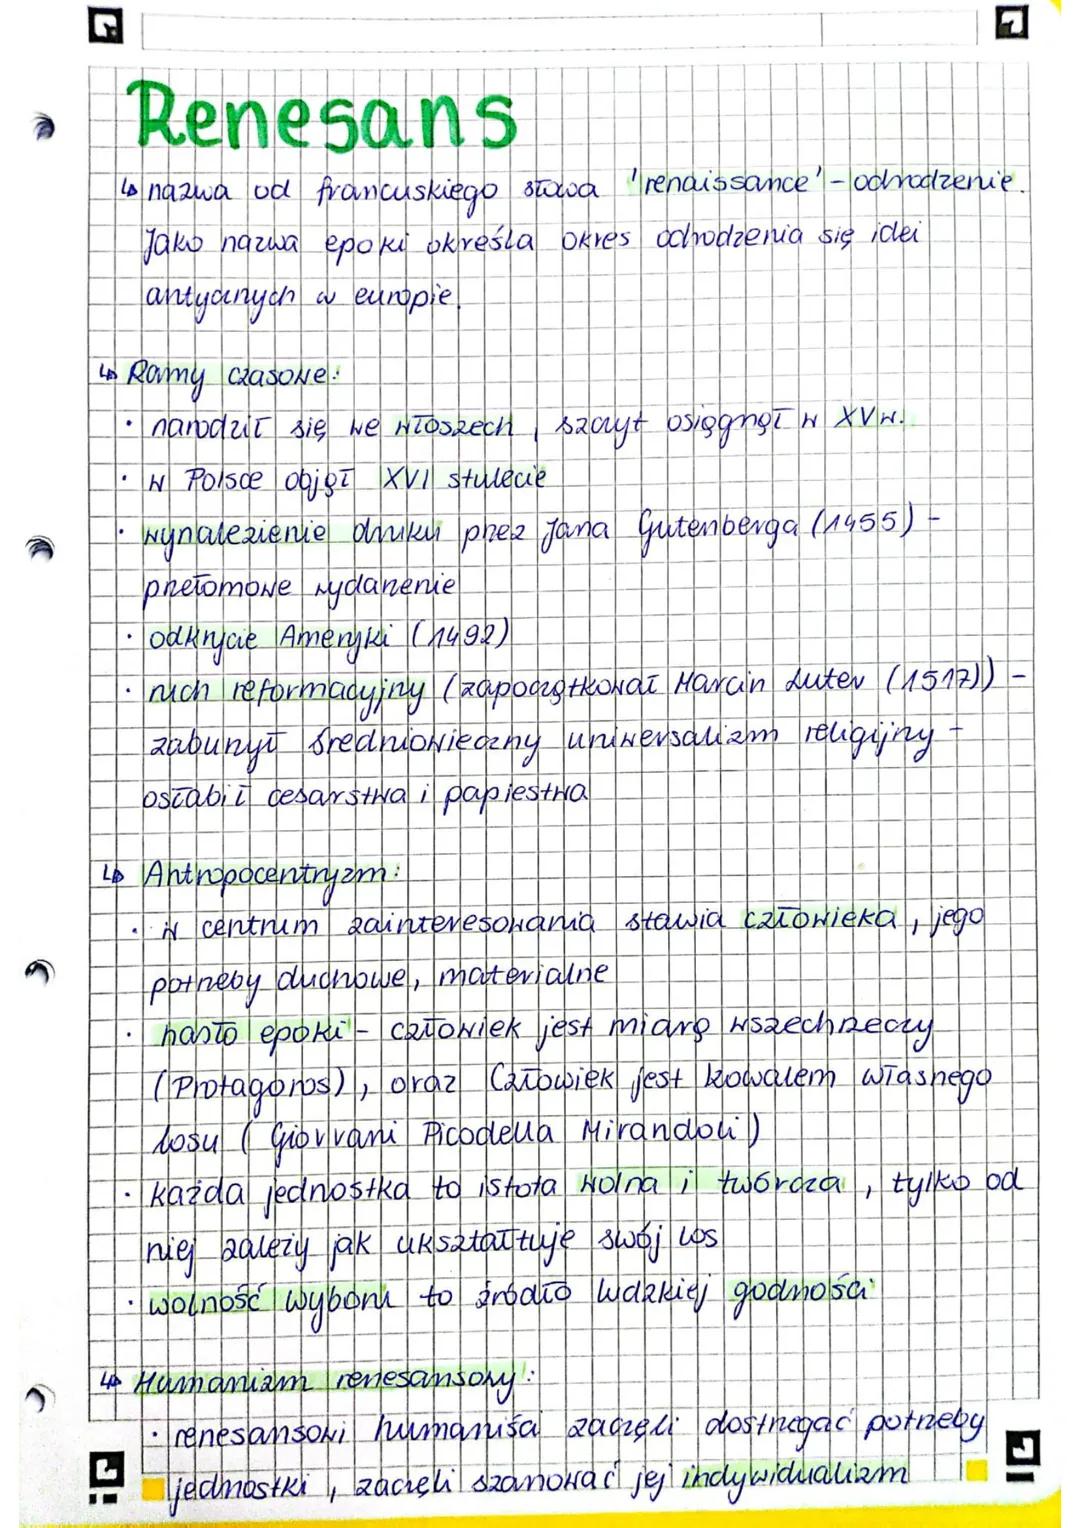 Renesans
↳ nazwa od francuskiego słowa 'renaissance' - odrodzenie.
Jako nazwa epoki określa okres odrodzenia się idei
antycznych w europie.
↳ Ramy czasowe:
· narodził się we włoszech, szczyt osiągnął w XVw.
· w Polsce objął XVI stulecie
· wynalezienie druku przez Jana Gutenberga (1455) -
przełomowe wydarzenie
· odkrycie Ameryki (1492)
· ruch reformacyjny (zapoczątkował Marcin Luter (1517)) -
zaburzył średniowieczny uniwersalizm religijny -
osłabił cesarstwa i papiestwa
↳ Antropocentryzm:
· w centrum zainteresowania stawia człowieka, jego
potrzeby duchowe, materialne
· hasło epoki - człowiek jest miarą wszechrzeczy
(Protagoros), oraz Człowiek jest kowalem własnego
losu (Giovvani Picodella Mirandoli)
· każda jednostka to istota wolna i twórcza, tylko od
niej zależy jak ukształtuje swój los
· wolność wyboru to źródło ludzkiej godności
↳ Humanizm renesansowy:
· renesansowi humaniści zaczęli dostrzegać potrzeby
jednostki, zaczęli szanować jej indywidualizm